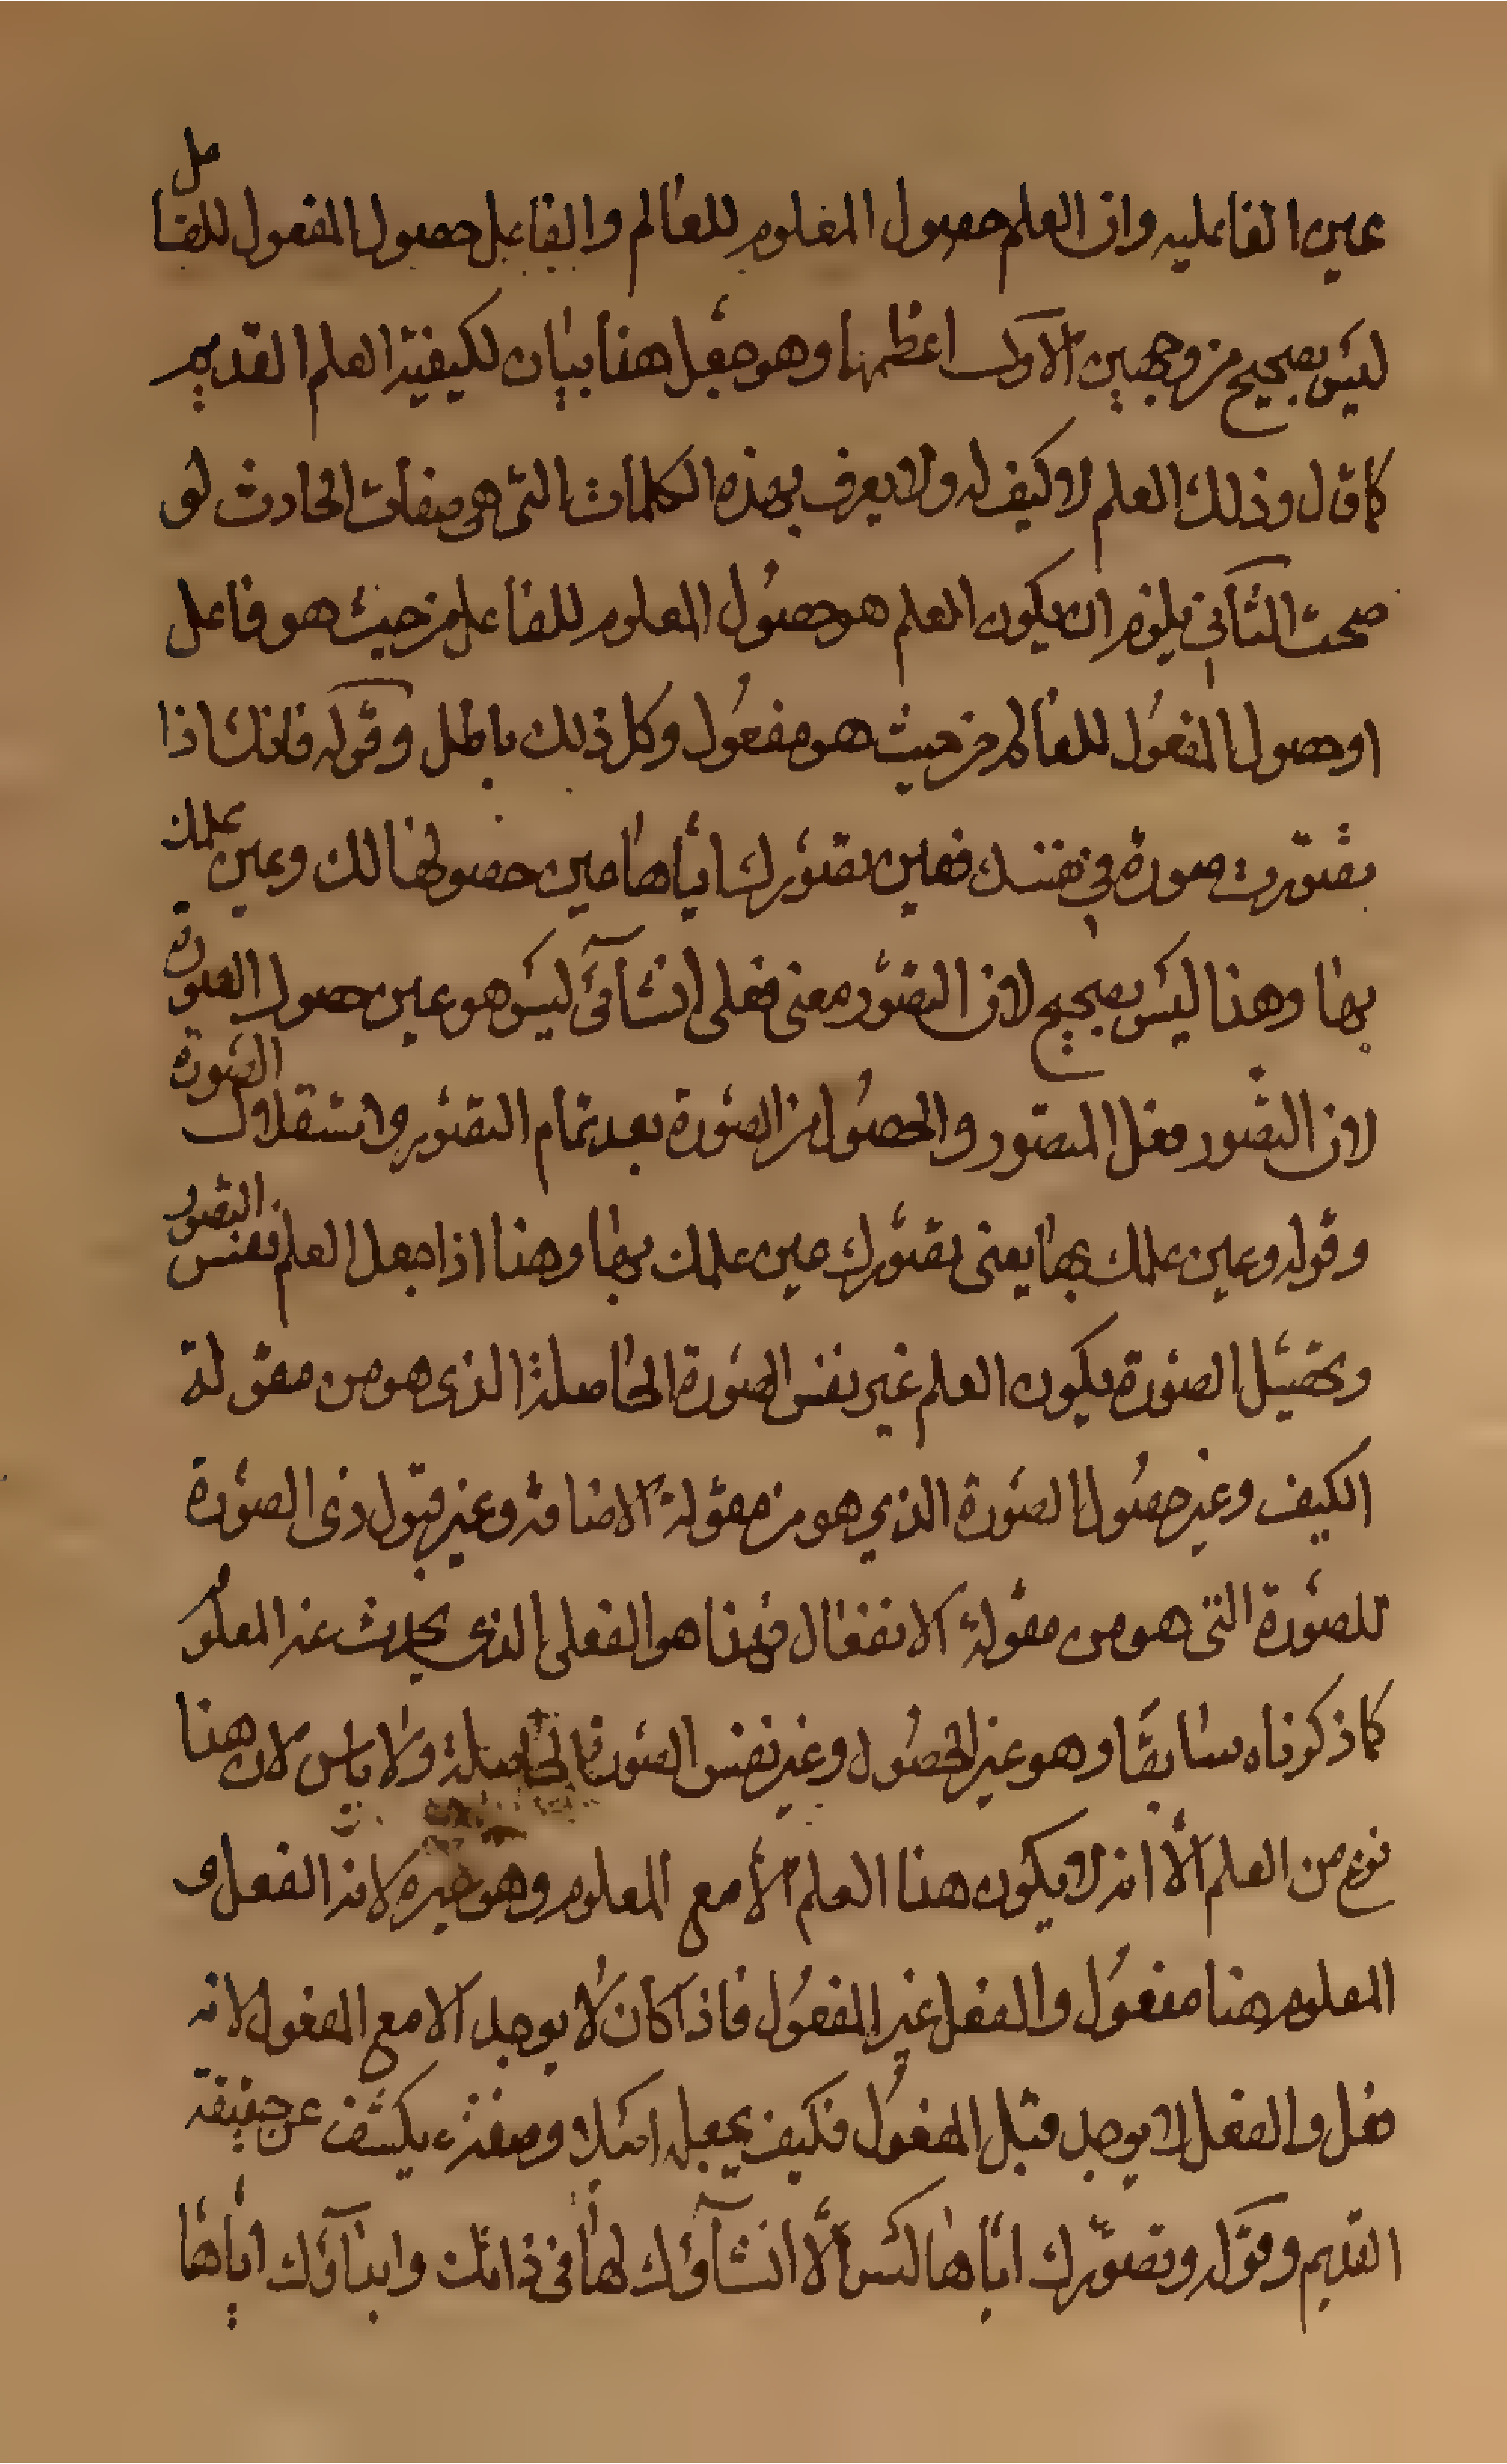 عين الفاعليه وان العلم حصول المعلوم للعالم والفاعل حصول المفعول للفاعل
ليس بصحيح من وجهين الاول اعظمها وهو جعل هذا بيان لكيفية العلم القديم
كما قال وذلك العلم لا كيف له ولا يعرف بهذه الكلمات التى هى صفات الحادث لو
صحت الثاني يلزم ان يكون العلم هو حصول المعلوم للفاعل من حيث هو فاعل
او حصول المفعول للعالم من حيث هو مفعول وكل ذلك باطل وقوله فانك اذا
تصورت صورة في نفسك فعين تصورك اياها عين حصولها لك وعين علمك
بها وهذا ليس بصحيح لان التصور معنى فعلى انشآئى ليس هو عين حصول الصورة
لان التصور فعل المتصور والحصول من الصورة بعد تمام التصور واستقلال الصورة
وقوله وعين علمك بها يعنى تصورك عين علمك بها وهذا اذا جعل العلم نفس التصور
وتخيل الصورة فيكون العلم غير نفس الصورة الحاصلة الذى هو من مقولة
الكيف وغير حصول الصورة الذي هو من مقولة الاضافة وغير قبول ذى الصورة
للصورة التى هو من مقولة الانفعال فهذا هو الفعلى الذى يحدث عند المعلو
كما ذكرناه سابقا وهو غير الحصول وغير نفس الصورة الحاصلة ولا باس لان هذا
نوع من العلم الا انه لا يكون هذا العلم الا مع المعلوم وهو غيره لانه الفعل و
المعلوم هنا مفعول والفعل غير المفعول فاذا كان لا يوجد الا مع المفعول لانه
فعل والفعل لا يوجد قبل المفعول فكيف يجعله اصلا وصفة يكشف عن حقيقة
القديم وقوله وتصورك اياها ليس الا انشآؤك لها فى ذاتك وابدآؤك اياها